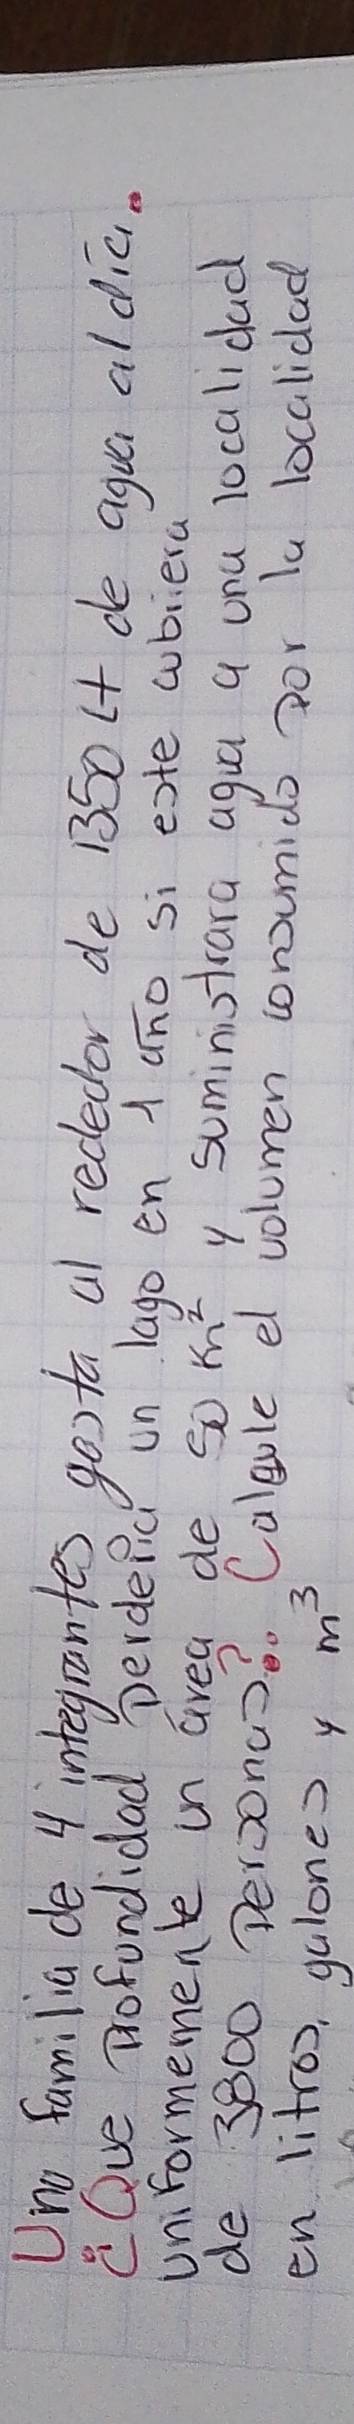 Una familia de 4 integrantes gasta al rededor de 1350 Lt de agua al dia.
¿Que profundidad perderia un lago en 1 año si este cubiiera
uniformemente un área de 50 Km² y suministrara agua a una localidad
de 3800 personas? Calcule el volumen consumido por la localidad
en litros, galones y m³